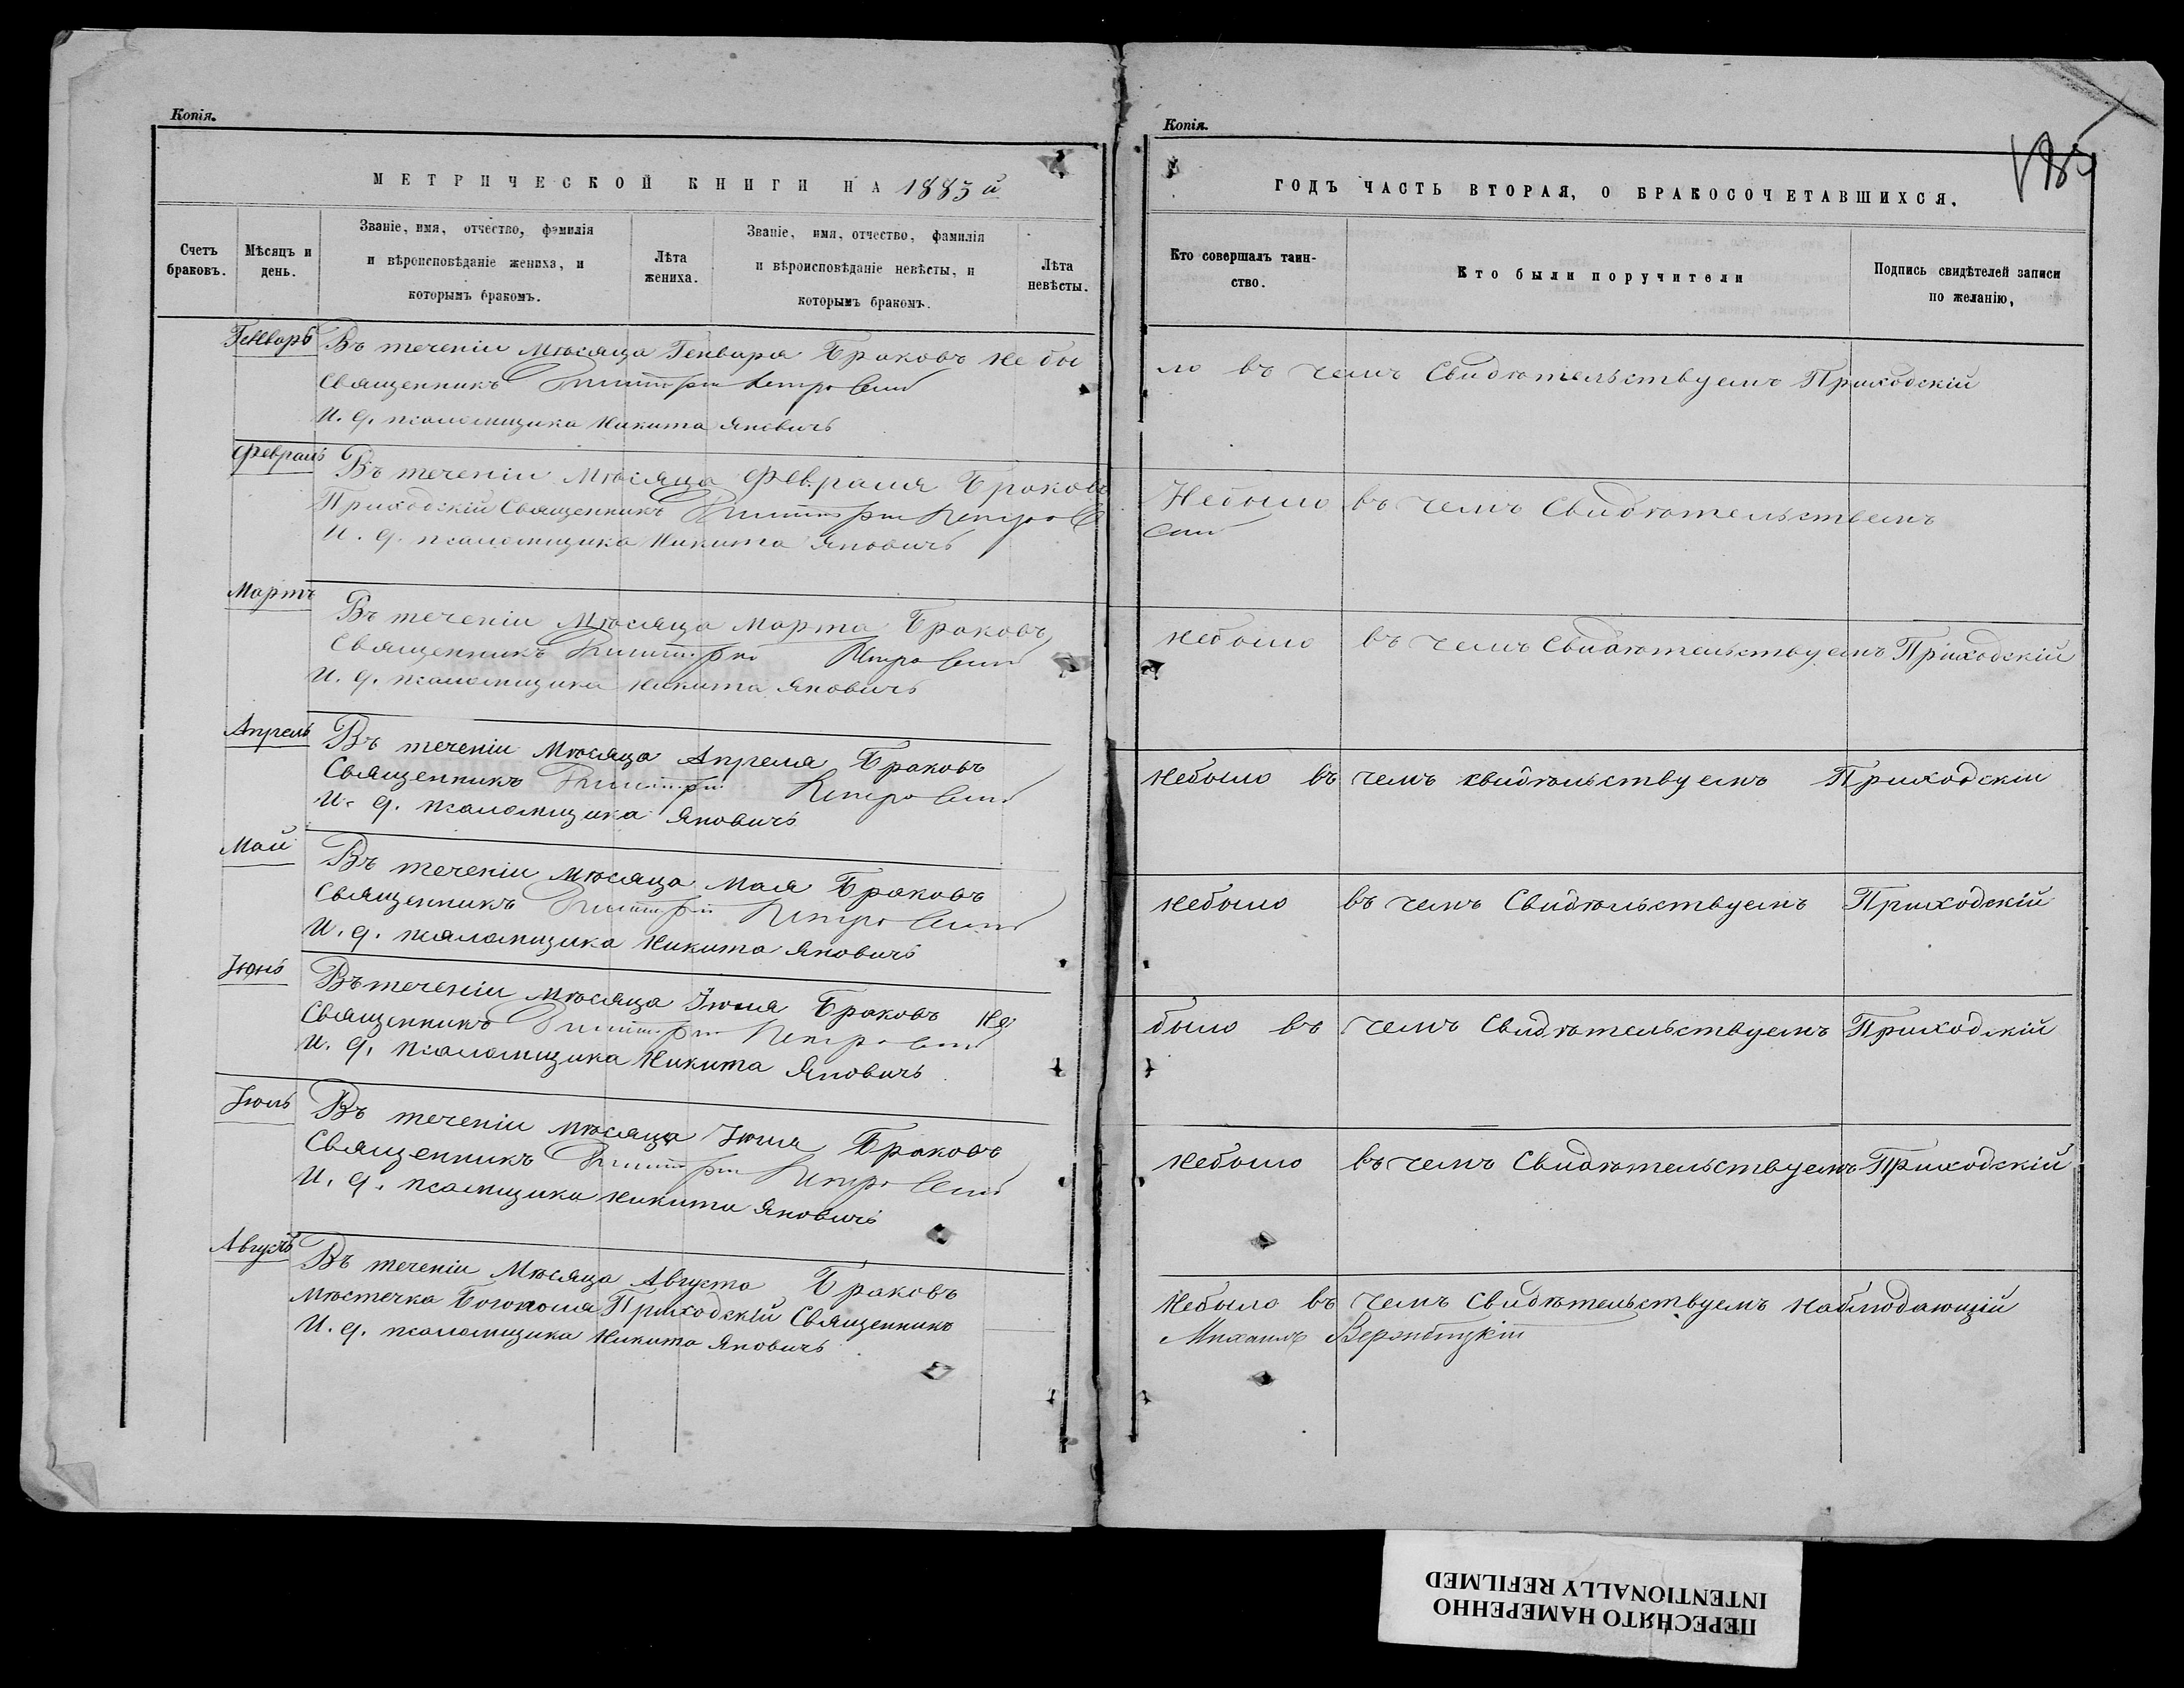 Копія.
МЕТРИЧЕСКОЙ КНИГИ НА 1883 й
Счетъ браковъ.
Мѣсяцъ и день.
Званіе, имя, отчество, фамилія и вѣроисповѣданіе жениха, и которымъ бракомъ.
Лѣта жениха.
Званіе, имя, отчество, фамилія и вѣроисповѣданіе невѣсты, и которымъ бракомъ.
Лѣта невѣсты.
Копія.
ГОДЪ ЧАСТЬ ВТОРАЯ, О БРАКОСОЧЕТАВШИХСЯ.
Кто совершалъ таинство.
Кто были поручители
Подпись свидѣтелей записи по желанію,
Генварь
Въ теченіи Мѣсяца Генваря Браковъ не бы
ло въ чемъ Свидѣтельствуемъ Приходскій
Священникъ Димитрій
И. д. псаломщика Никита Яновичъ
Февраль
Въ теченіи Мѣсяца Февраля Браковъ
Небыло въ чемъ Свидѣтельствемъ
Приходскій Священникъ Димитрій
И. д. псаломщика Никита Яновичъ
Мартъ
Въ теченіи Мѣсяца Марта Браковъ
небыло въ чемъ Свидѣтельствуемъ Приходскій
Священникъ Димитрій
И. д. псаломщика Никита Яновичъ
Апрель
Въ теченіи Мѣсяца Апреля Браковъ
небыло въ чемъ свидѣльствуемъ Приходскій
Священникъ Димитрій
И. д. псаломщика Яновичъ
Май
Въ теченіи Мѣсяца Мая Браковъ
небыло въ чемъ Свидѣльствуемъ Приходскій
Священникъ Димитрій
И. д. псаломщика Никита Яновичъ
Іюнь
Въ теченіи Мѣсяца Іюня Браковъ не
было въ чемъ Свидѣтельствуемъ Приходскій
Священникъ Димитрій
И. д. псаломщика Никита Яновичъ
Іюль
Въ теченіи мѣсяца Іюля Браковъ
небыло въ чемъ Свидѣтельствуемъ Приходскій
Священникъ Димитрій
И. д. псаомщика Никита Яновичъ
Августъ
Въ теченіи Мѣсяца Августа Браковъ
Небыло въ чемъ Свидѣтельствуемъ наблюдающій
Мѣстечка Богополя Приходскій Священникъ
Михаилъ Вержбицкій
И. д. псаломщика Никита Яновичъ
ПЕРЕСНЯТО НАМЕРЕННО
INTENTIONALLY REFILMED